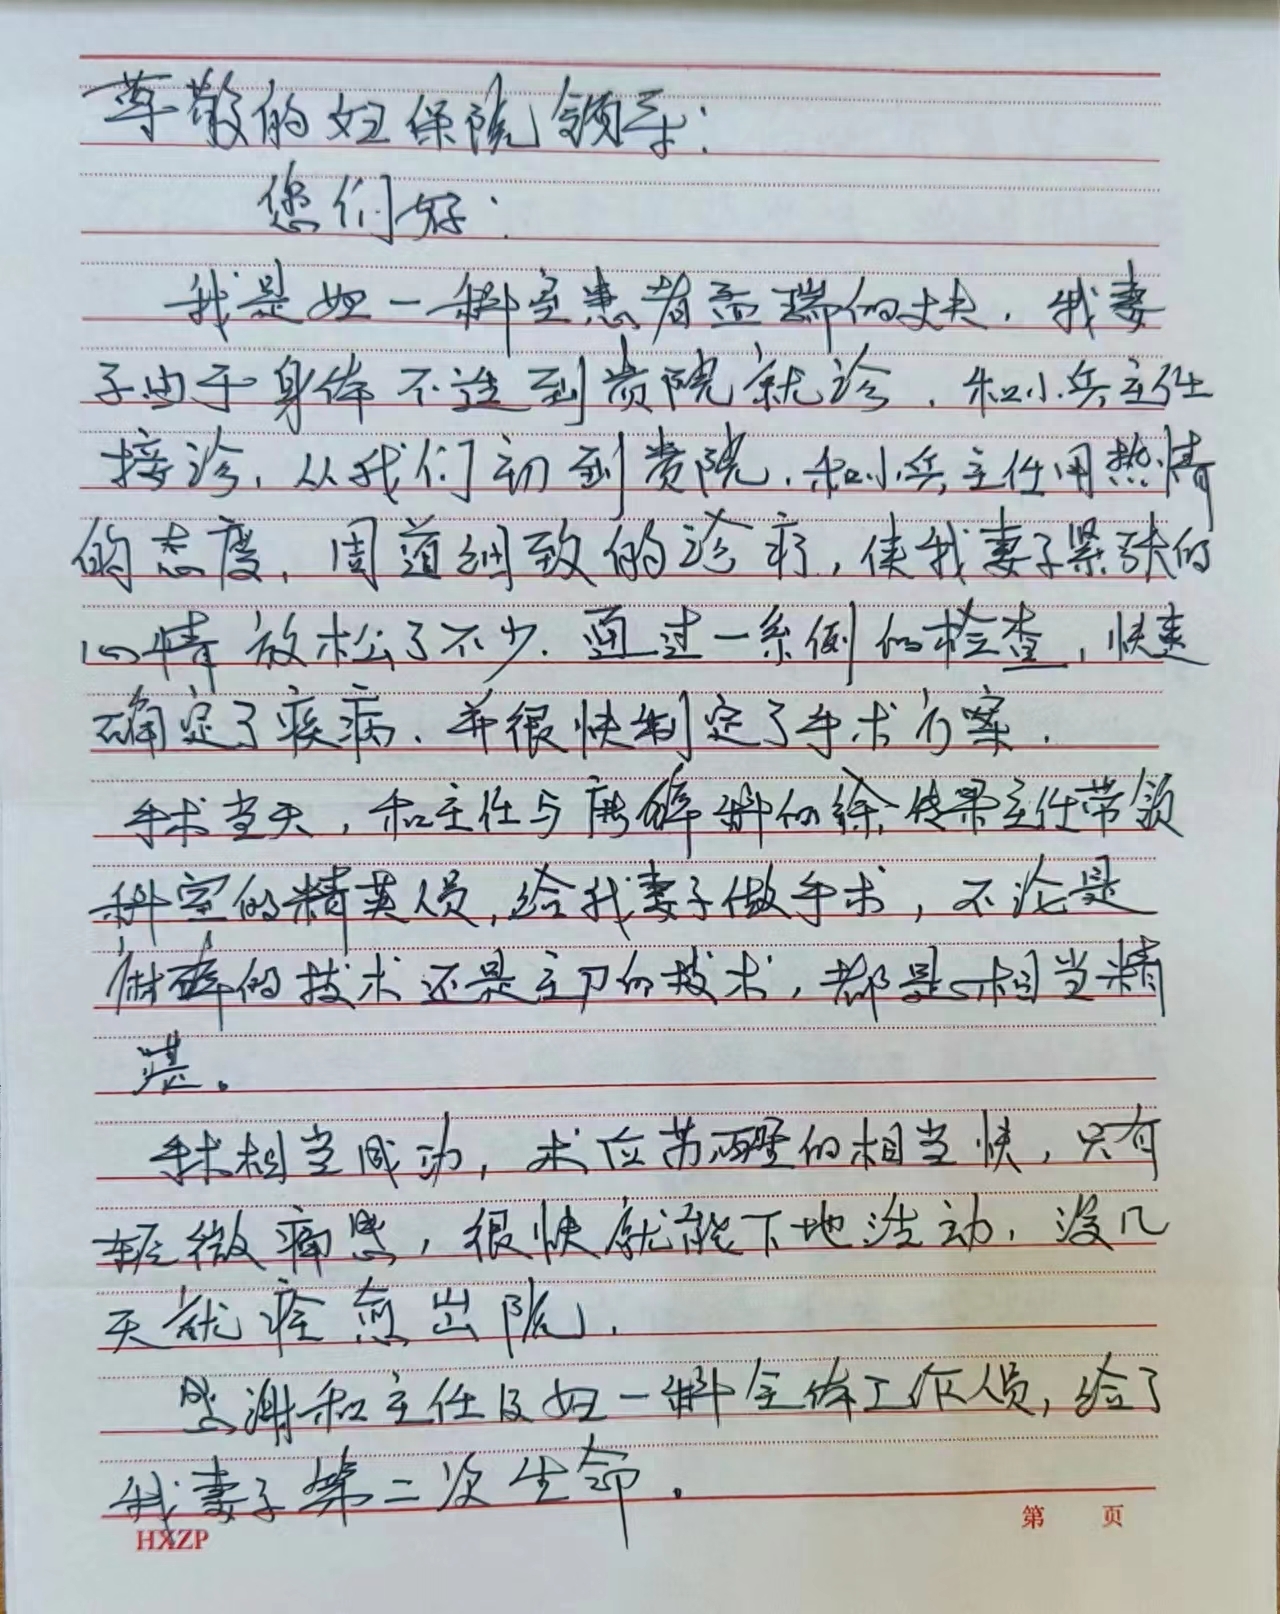 尊敬的妇保院领导：
您们好：
我是妇一科室患者孟瑞的丈夫．我妻
子由于身体不适到贵院就诊．和小兵主任
接诊，从我们初到贵院．和小兵主任用热情
的态度，周道细致的诊疗，使我妻子紧张的
心情放松了不少．通过一系例的检查，快速
确定了疾病．并很快制定了手术方案．
手术当天，和主任与麻醉科的徐主任带领
科室的精英人员，给我妻子做手术，不论是
麻醉的技术还是主刀的技术，都是相当精
湛。
手术相当成功，术后苏醒的相当快，只有
轻微痛感，很快就能下地活动，没几
天就痊愈出院．
感谢和主任及妇一科全体工作人员，给了
我妻子第二次生命．
HXZP
第 页